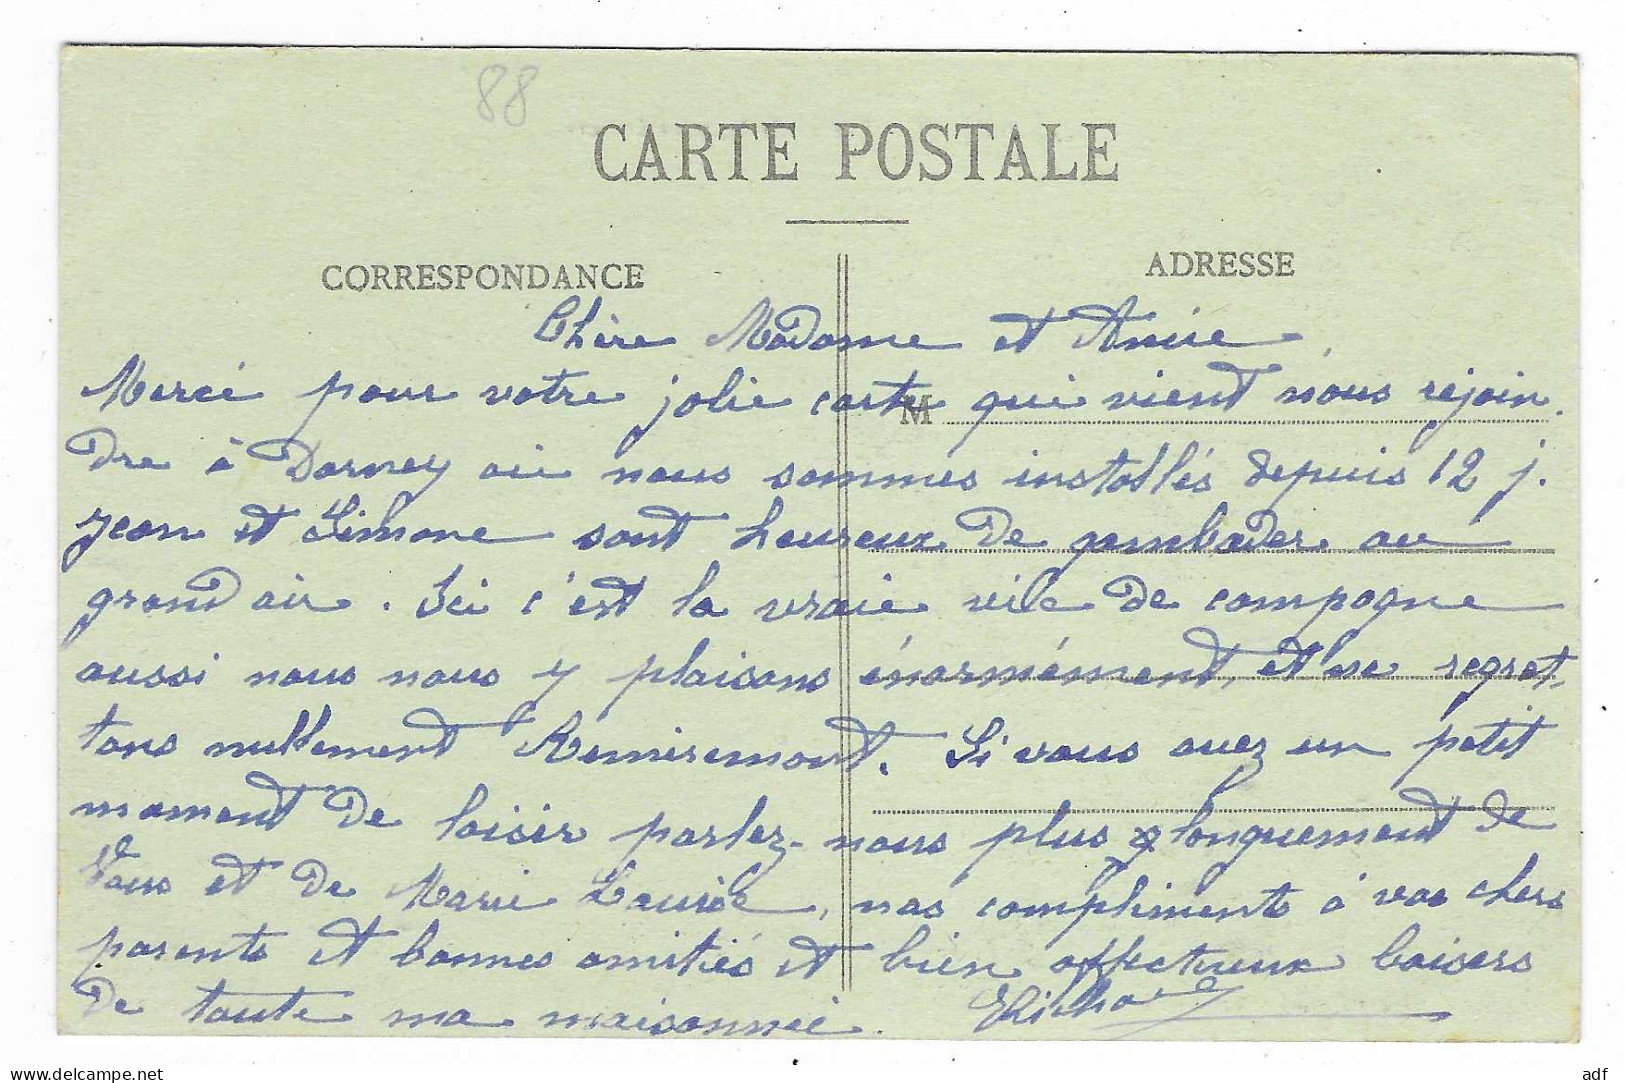 88
CARTE POSTALE
CORRESPONDANCE
ADRESSE
Chère Madame et Amie
M
Merci pour votre jolie carte qui vient nous rejoin.
dre à Darney où nous sommes installés depuis 12 j.
Jean et Simone sont heureux de gambader au
grand air. Ici c'est la vraie vie de campagne
aussi nous nous y plaisons énormément, et ne regret.
tons nullement Remiremont. Si vous avez un petit
moment de loisir parlez-nous plus longuement de
Vous et de Marie Louise, nos compliments à vos chers
parents et bonnes amitiés et bien affectueux baisers
de toute ma maisonnée.
www.delcampe.net
adf